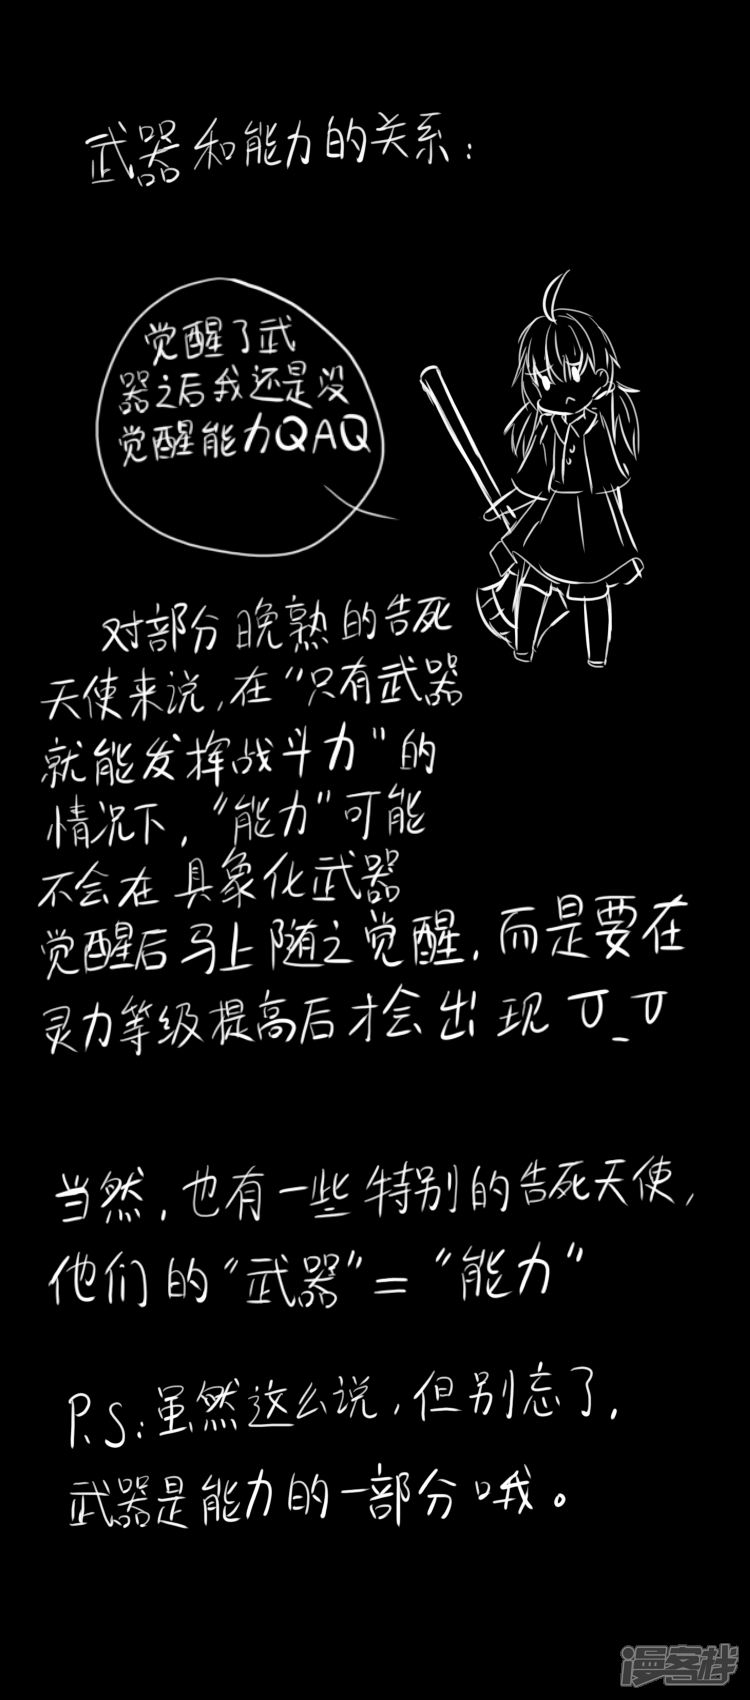 武器和能力的关系：
觉醒了武
器之后我还是没
觉醒能力QAQ
对部分晚熟的告死
天使来说，在“只有武器
就能发挥战斗力”的
情况下，“能力”可能
不会在具象化武器
觉醒后马上随之觉醒，而是要在
灵力等级提高后才会出现T_T
当然，也有一些特别的告死天使，
他们的“武器”=“能力”
P.S：虽然这么说，但别忘了，
武器是能力的一部分哦。
漫客栈